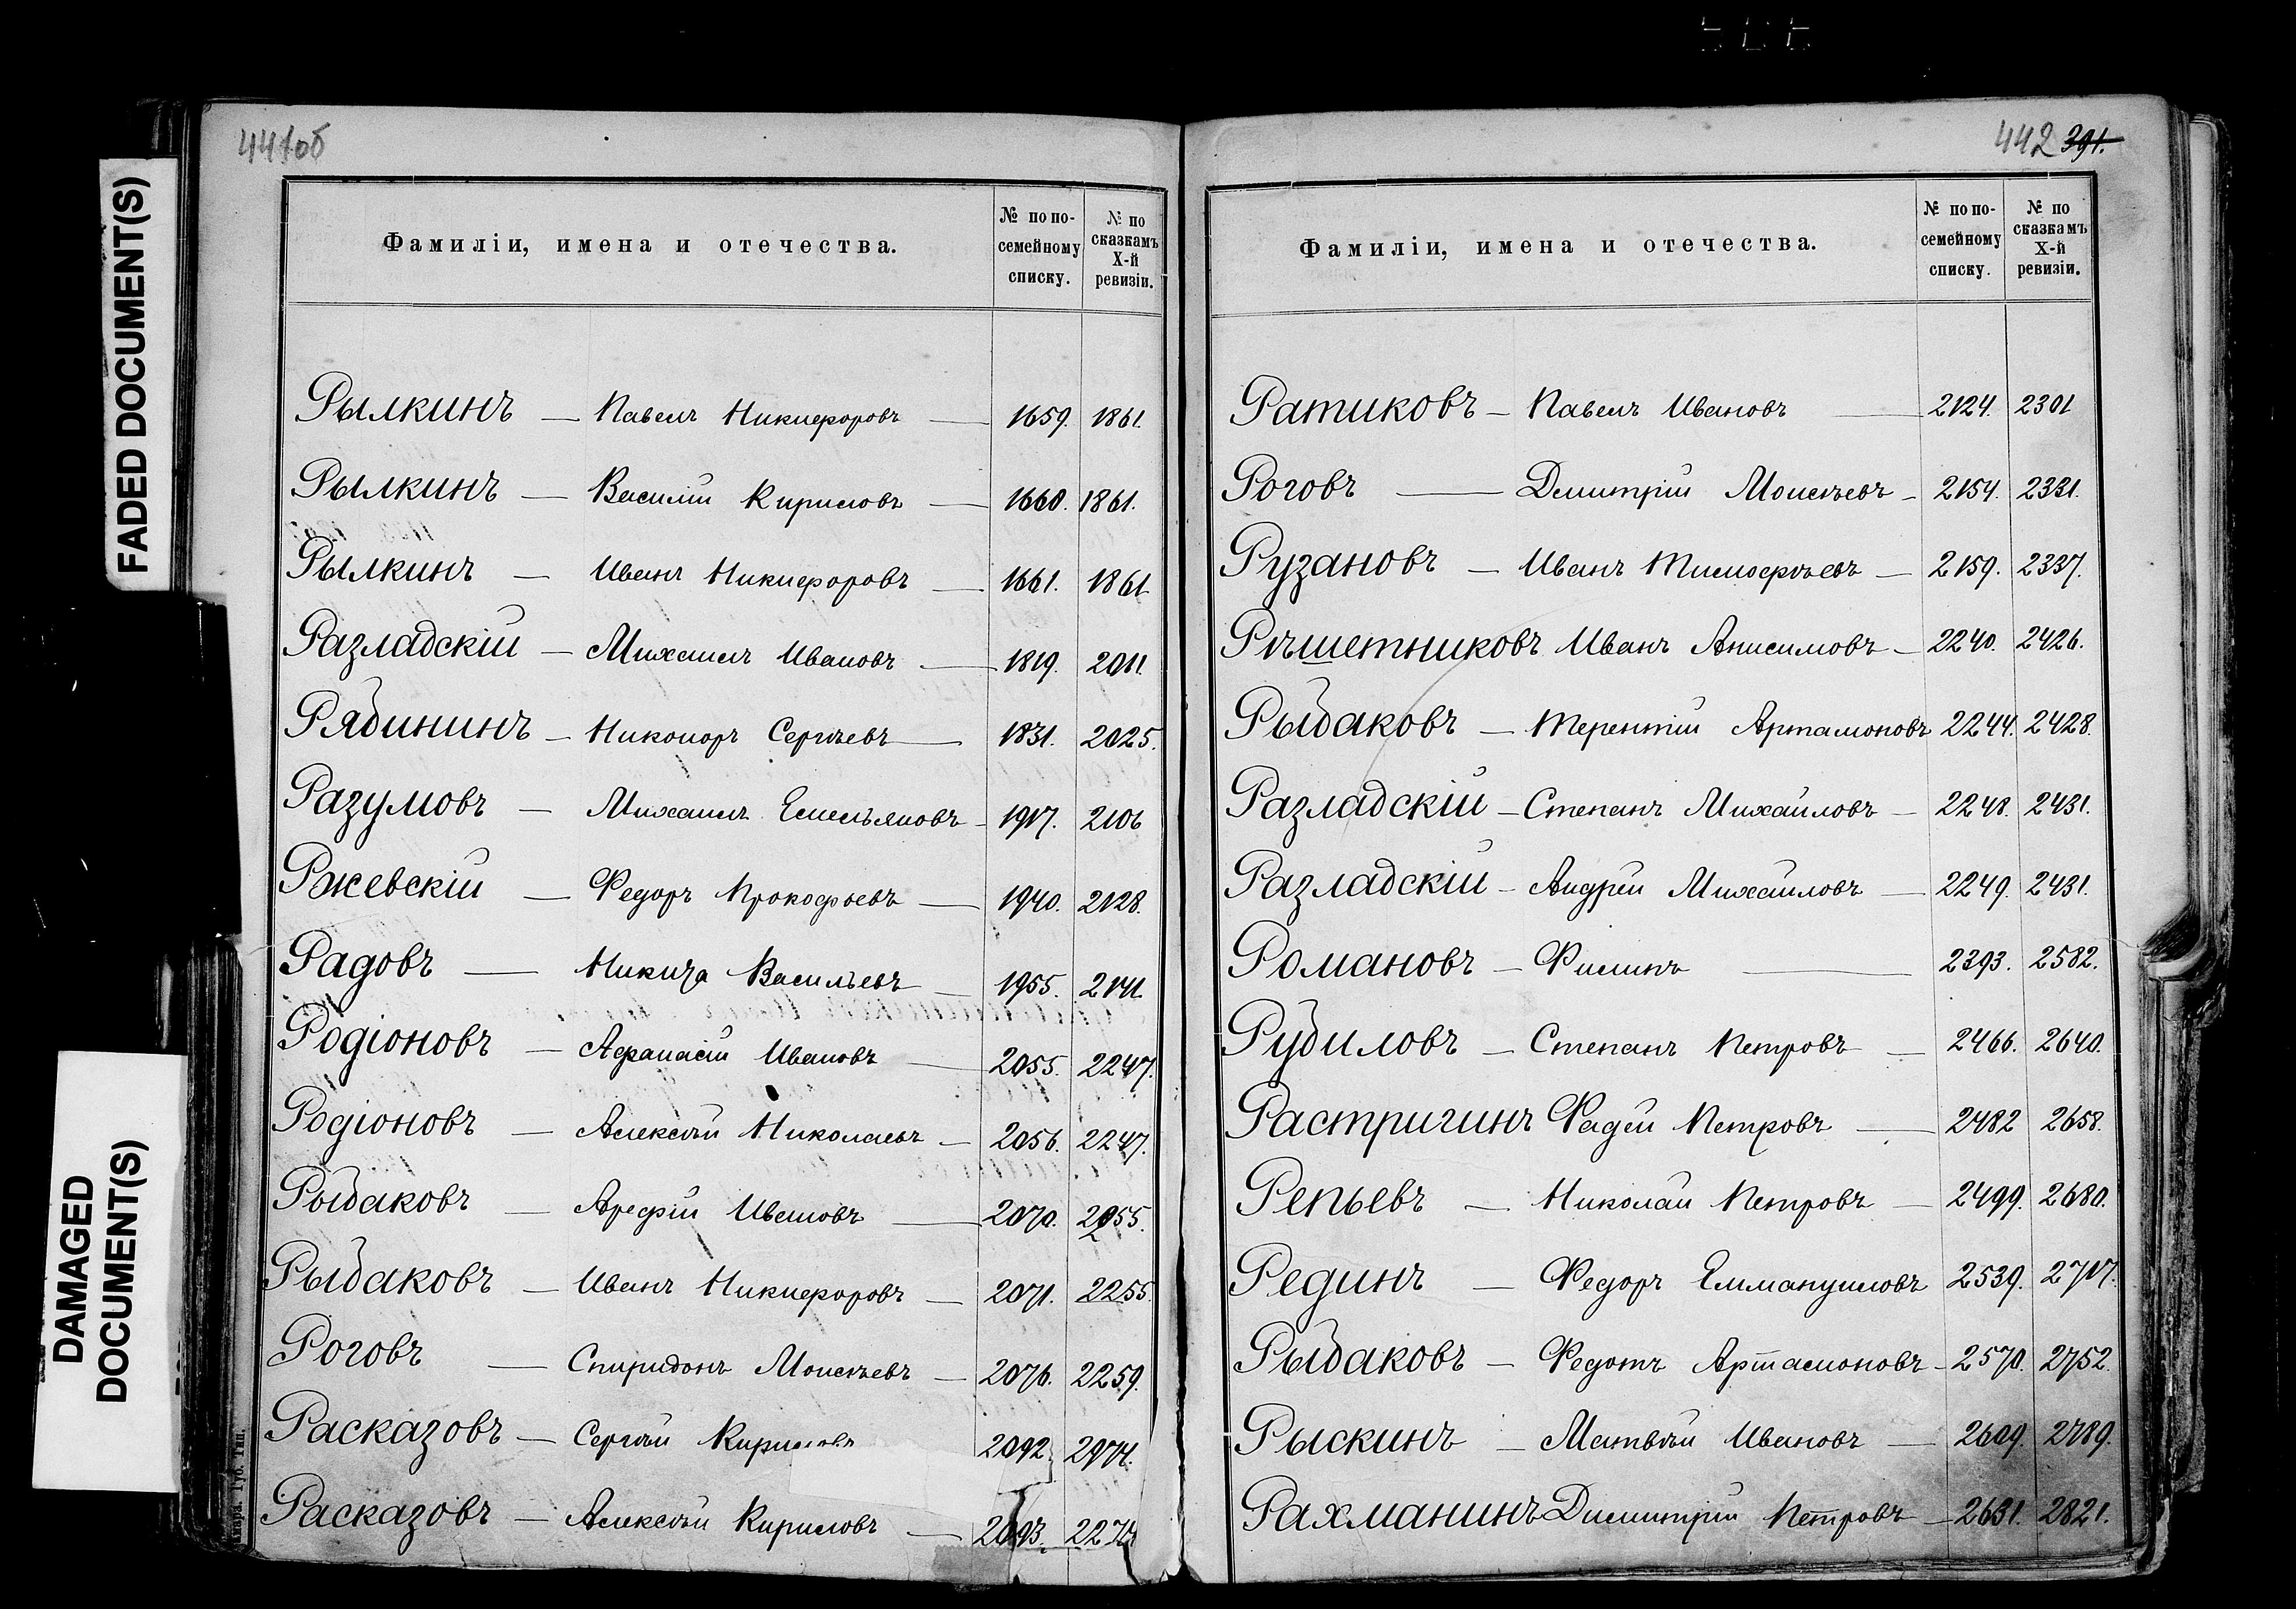 FADED DOCUMENT(S)
DAMAGED
DOCUMENT(S)
441об
Фамиліи, имена и отечества. № по по-семейному списку. № по сказкамъ X-й ревизіи.
Рылкинъ — Павелъ Никифоровъ — 1659. 1861.
Рылкинъ — Василій Кириловъ — 1660. 1861.
Рылкинъ — Иванъ Никифоровъ — 1661. 1861
Разладскій — Михаилъ Ивановъ — 1819. 2011.
Рябининъ — Никоноръ Сергѣевъ — 1831. 2025.
Разумовъ — Михаилъ Емельяновъ — 1917. 2106
Ржевскій — Федоръ Прокофьевъ — 1940. 2128.
Радовъ — Никита Васильевъ — 1955. 2141.
Родіоновъ — Афанасій Ивановъ — 2055. 2247.
Родіоновъ — Алексѣй Николаевъ — 2056. 2247.
Рыбаковъ — Арефій Ивановъ — 2070. 2255.
Рыбаковъ — Иванъ Никифоровъ — 2071. 2255.
Роговъ — Спиридонъ Моисѣевъ — 2076. 2259.
Расказовъ — Сергѣй Кириловъ 2092.
Расказовъ — Алексѣй Кириловъ — 2093. 2274
Губ. Тип.
442 391.
Фамиліи, имена и отечества. № по по-семейному списку. № по сказкамъ X-й ревизіи.
Ратиковъ — Павелъ Ивановъ — 2124. 2301
Роговъ — Дмитрій Моисѣевъ — 2154. 2331.
Рузановъ — Иванъ Тимофѣевъ — 2159. 2337.
Рѣшетниковъ Иванъ Анисимовъ — 2240. 2426.
Рыбаковъ — Терентій Артамоновъ 2244. 2428.
Разладскій — Степанъ Михайловъ — 2248. 2431.
Разладскій — Андрей Михайловъ — 2249. 2431.
Романовъ — Филипъ — 2393. 2582.
Рубиловъ — Степанъ Петровъ — 2466. 2640.
Растригинъ Фадей Петровъ — 2482 2658.
Репьевъ — Николай Петровъ — 2499. 2680.
Рединъ — Федоръ Еммануиловъ 2539. 2717.
Рыбаковъ — Федотъ Артамоновъ — 2570. 2752.
Рыскинъ — Матвѣй Ивановъ — 2609. 2789.
Рахманинъ Димитрій Петровъ — 2631. 2821.